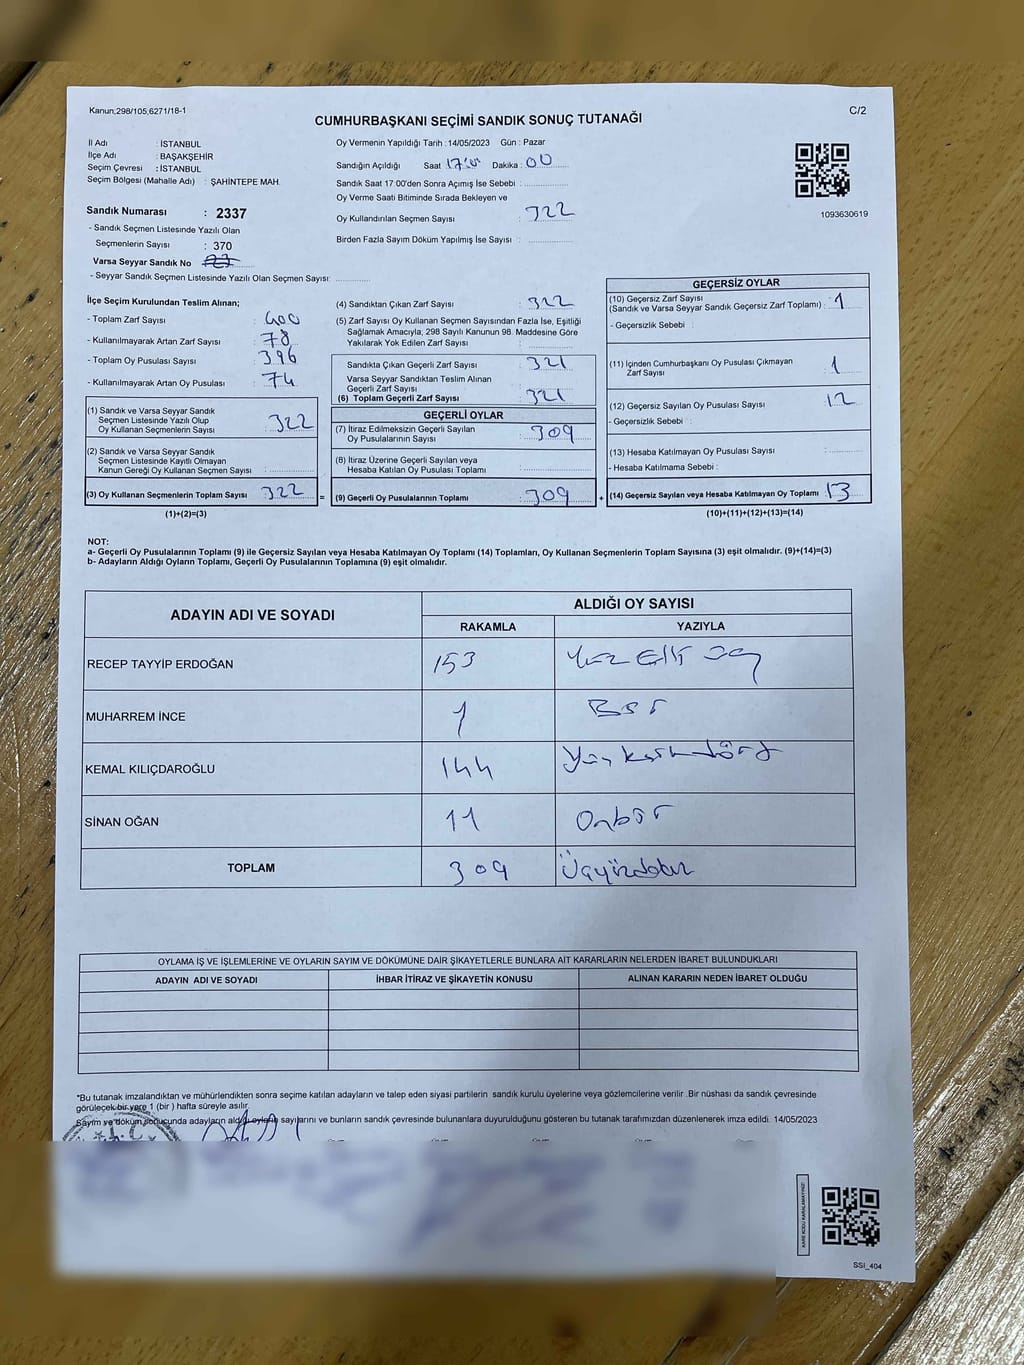 Kanun;298/105;6271/18-1
C/2
CUMHURBAŞKANI SEÇİMİ SANDIK SONUÇ TUTANAĞI
İl Adı : İSTANBUL
İlçe Adı : BAŞAKŞEHİR
Seçim Çevresi : İSTANBUL
Seçim Bölgesi (Mahalle Adı) : ŞAHİNTEPE MAH.
Sandık Numarası : 2337
- Sandık Seçmen Listesinde Yazılı Olan
Seçmenlerin Sayısı : 370
Varsa Seyyar Sandık No
- Seyyar Sandık Seçmen Listesinde Yazılı Olan Seçmen Sayısı:
Oy Vermenin Yapıldığı Tarih :14/05/2023 Gün : Pazar
Sandığın Açıldığı Saat Dakika : 00
Sandık Saat 17:00'den Sonra Açımış İse Sebebi :
Oy Verme Saati Bitiminde Sırada Bekleyen ve
Oy Kullandırılan Seçmen Sayısı : 322
Birden Fazla Sayım Döküm Yapılmış İse Sayısı :
1093630619
İlçe Seçim Kurulundan Teslim Alınan;
- Toplam Zarf Sayısı : 400
- Kullanılmayarak Artan Zarf Sayısı : 78
- Toplam Oy Pusulası Sayısı : 396
- Kullanılmayarak Artan Oy Pusulası : 74
(1) Sandık ve Varsa Seyyar Sandık
Seçmen Listesinde Yazılı Olup
Oy Kullanan Seçmenlerin Sayısı : 322
(2) Sandık ve Varsa Seyyar Sandık
Seçmen Listesinde Kayıtlı Olmayan
Kanun Gereği Oy Kullanan Seçmen Sayısı :
(3) Oy Kullanan Seçmenlerin Toplam Sayısı : 322 =
(1)+(2)=(3)
(4) Sandıktan Çıkan Zarf Sayısı : 322
(5) Zarf Sayısı Oy Kullanan Seçmen Sayısından Fazla İse, Eşitliği
Sağlamak Amacıyla, 298 Sayılı Kanunun 98. Maddesine Göre
Yakılarak Yok Edilen Zarf Sayısı :
Sandıkta Çıkan Geçerli Zarf Sayısı : 321
Varsa Seyyar Sandıktan Teslim Alınan
Geçerli Zarf Sayısı
(6) Toplam Geçerli Zarf Sayısı : 321
GEÇERLİ OYLAR
(7) İtiraz Edilmeksizin Geçerli Sayılan
Oy Pusulalarının Sayısı : 309
(8) İtiraz Üzerine Geçerli Sayılan veya
Hesaba Katılan Oy Pusulası Toplamı :
(9) Geçerli Oy Pusulalarının Toplamı : 309 +
GEÇERSİZ OYLAR
(10) Geçersiz Zarf Sayısı
(Sandık ve Varsa Seyyar Sandık Geçersiz Zarf Toplamı) : 1
- Geçersizlik Sebebi :
(11) İçinden Cumhurbaşkanı Oy Pusulası Çıkmayan
Zarf Sayısı : 1
(12) Geçersiz Sayılan Oy Pusulası Sayısı : 12
- Geçersizlik Sebebi :
(13) Hesaba Katılmayan Oy Pusulası Sayısı :
- Hesaba Katılmama Sebebi :
(14) Geçersiz Sayılan veya Hesaba Katılmayan Oy Toplamı : 13
(10)+(11)+(12)+(13)=(14)
NOT:
a- Geçerli Oy Pusulalarının Toplamı (9) ile Geçersiz Sayılan veya Hesaba Katılmayan Oy Toplamı (14) Toplamları, Oy Kullanan Seçmenlerin Toplam Sayısına (3) eşit olmalıdır. (9)+(14)=(3)
b- Adayların Aldığı Oyların Toplamı, Geçerli Oy Pusulalarının Toplamına (9) eşit olmalıdır.
ADAYIN ADI VE SOYADI
ALDIĞI OY SAYISI
RAKAMLA YAZIYLA
RECEP TAYYİP ERDOĞAN 153 Yüz Elli üç
MUHARREM İNCE 1 Bir
KEMAL KILIÇDAROĞLU 144 Yüz kırk dört
SİNAN OĞAN 11 Onbir
TOPLAM 309 Üçyüzdokuz
OYLAMA İŞ VE İŞLEMLERİNE VE OYLARIN SAYIM VE DÖKÜMÜNE DAİR ŞİKAYETLERLE BUNLARA AİT KARARLARIN NELERDEN İBARET BULUNDUKLARI
ADAYIN ADI VE SOYADI İHBAR İTİRAZ VE ŞİKAYETİN KONUSU ALINAN KARARIN NEDEN İBARET OLDUĞU
*Bu tutanak imzalandıktan ve mühürlendikten sonra seçime katılan adayların ve talep eden siyasi partilerin sandık kurulu üyelerine veya gözlemcilerine verilir .Bir nüshası da sandık çevresinde
görülecek bir yere 1 (bir ) hafta süreyle asılır.
Sayım ve döküm sonucunda adayların aldığı oyların sayılarını ve bunların sandık çevresinde bulunanlara duyurulduğunu gösteren bu tutanak tarafımızdan düzenlenerek imza edildi. 14/05/2023
KARE KODU KARALAMAYINIZ!
SSI_404